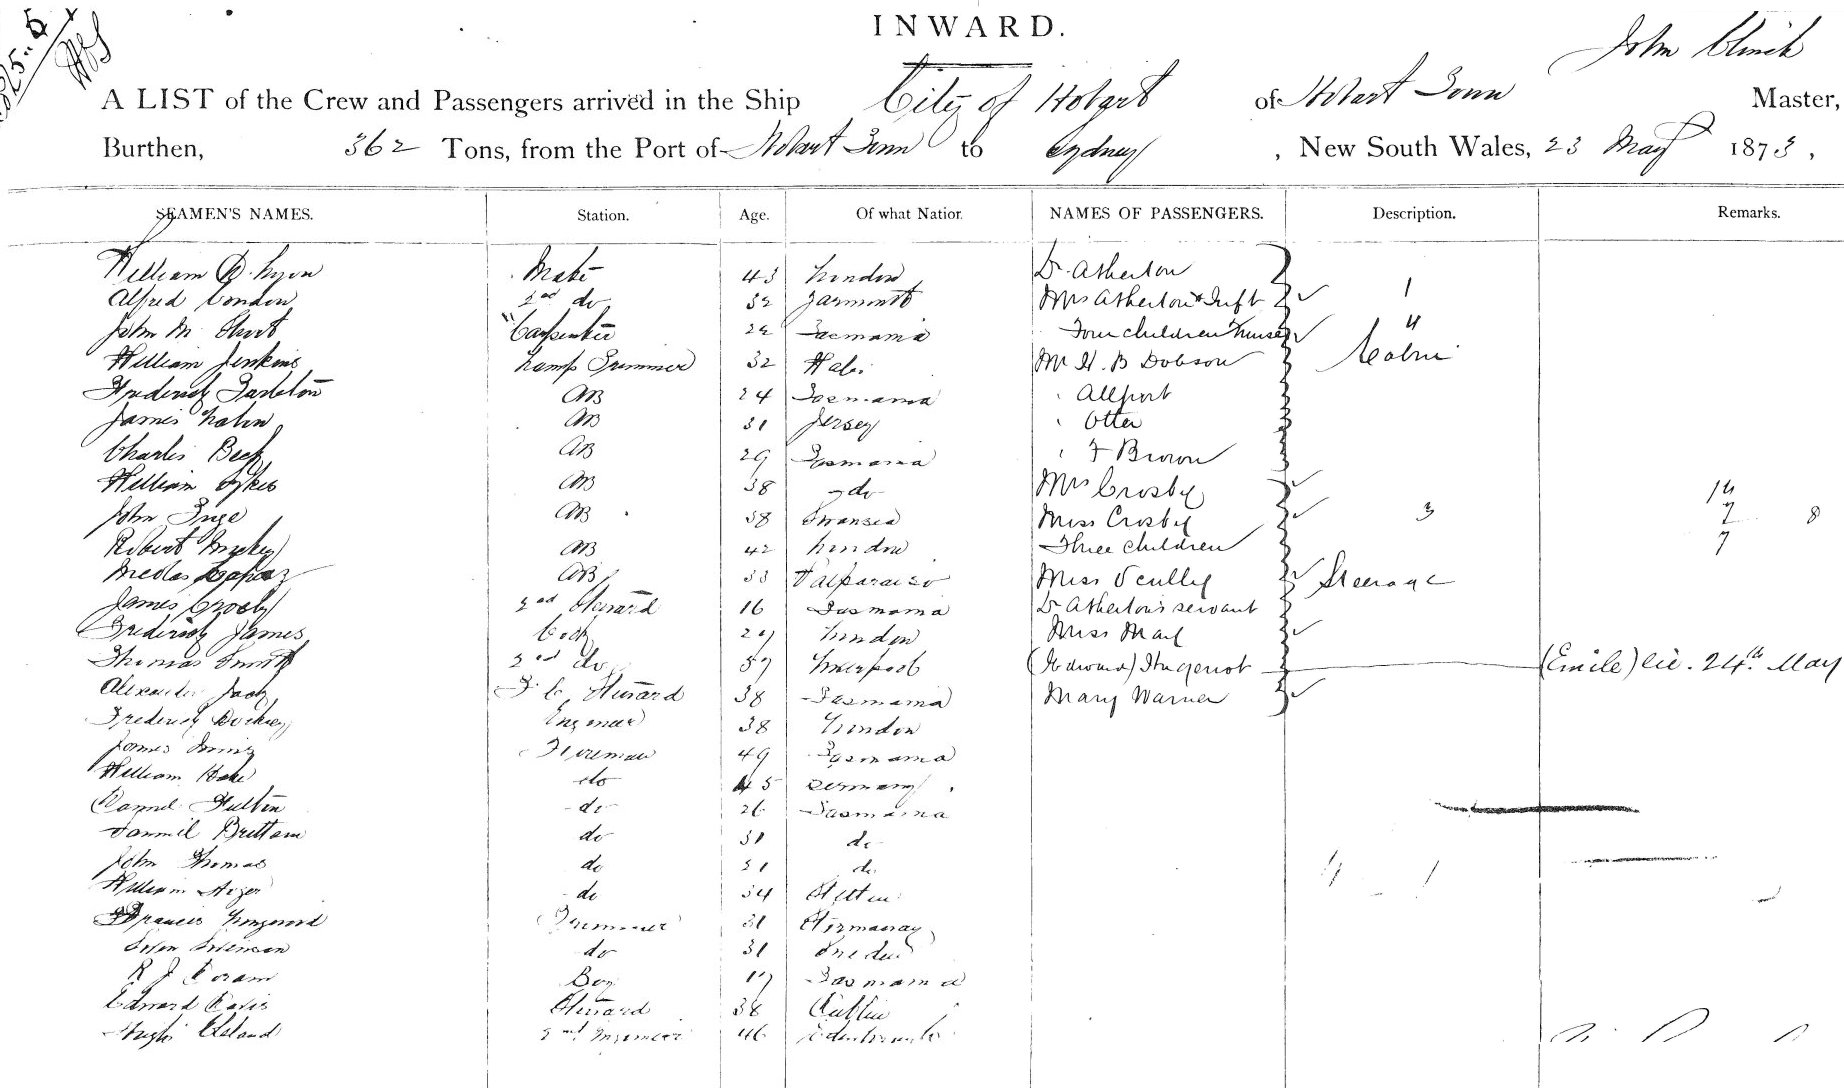 INWARD.
John Clinch
A LIST of the Crew and Passengers arrived in the Ship City of Hobart of Hobart Town Master,
Burthen, 362 Tons, from the Port of Hobart Town to Sydney, New South Wales, 23 May 1873,
SEAMEN'S NAMES. Station. Age. Of what Nation. NAMES OF PASSENGERS. Description. Remarks.
William Lyon Mate 43 London Dr. Atherton
Alfred London 2nd do 32 Yarmouth Mrs Atherton & Inft 1
John M. Short Carpenter Tasmania Four children & nurse 4
William Jenkins Lamp Trimmer 32 Wales Mr H. B Dobson Cabin
Frederick Tarleton AB 24 Tasmania " Allport
James AB 31 Jersey " Otter
Charles Beck AB 29 Tasmania " F Brown
William Sykes AB 38 do Mrs Crosby 14
John Inge AB 38 Swansea Miss Crosby 3 2 8
Robert AB 42 London Three children 7
AB 33 Valparaiso Miss Scully Steerage
James Crosby 2nd Steward 16 Tasmania Dr Atherton's servant
Frederick James Cook 29 London Miss May
Thomas Smith 2nd do 57 Liverpool (Edward) Hugenot (Emile) lic. 24th May
Alexander Jack F. C. Steward 38 Tasmania Mary Warner
Frederick Engineer 38 London
James Fireman 49 Tasmania
William do 45 Germany
Daniel Fulton do 26 Tasmania
Samuel Brittain do 31 do
John Thomas do 31 do
William do 34 Stettin
Francis Trimmer 31
Sven Swenson do 31 Sweden
R J Boy 17 Tasmania
Edward Davis Steward 38 Dublin
Hugh Cleland 2nd Engineer 46 Edinburgh